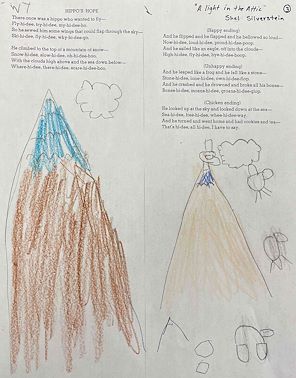 W7
HIPPO'S HOPE
There once was a hippo who wanted to fly—
Fly-hi-dee, try-hi-dee, my-hi-dee-ho.
So he sewed him some wings that could flap through the sky—
Sky-hi-dee, fly-hi-dee, why-hi-dee-go.
He climbed to the top of a mountain of snow—
Snow-hi-dee, slow-hi-dee, oh-hi-dee-hoo.
With the clouds high above and the sea down below—
Where-hi-dee, there-hi-dee, scare-hi-dee-boo.
"A light in the Attic"
Shel Silverstein
3
(Happy ending)
And he flipped and he flapped and he bellowed so loud—
Now-hi-dee, loud-hi-dee, proud-hi-dee-poop.
And he sailed like an eagle, off into the clouds—
High-hi-dee, fly-hi-dee, bye-hi-dee-boop.
(Unhappy ending)
And he leaped like a frog and he fell like a stone—
Stone-hi-dee, lone-hi-dee, own-hi-dee-flop.
And he crashed and he drowned and broke all his bones—
Bones-hi-dee, moans-hi-dee, groans-hi-dee-glop.
(Chicken ending)
He looked up at the sky and looked down at the sea—
Sea-hi-dee, free-hi-dee, whee-hi-dee-way.
And he turned and went home and had cookies and tea—
That's hi-dee, all hi-dee, I have to say.